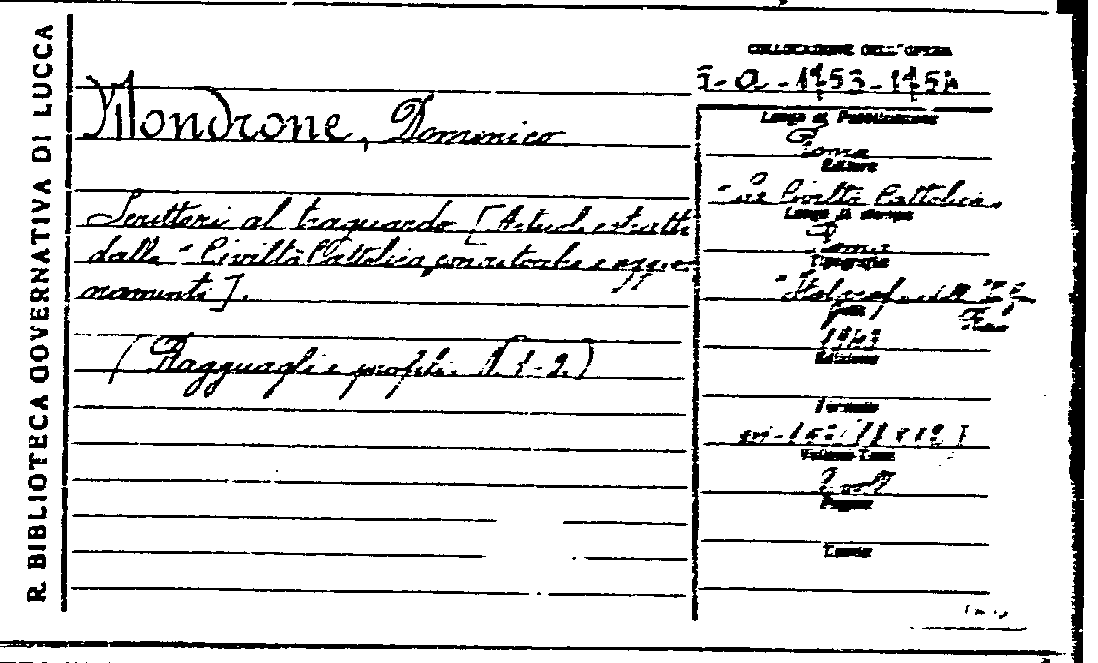 R. BIBLIOTECA GOVERNATIVA DI LUCCA
Mondrone, Domenico
Scrittori al traguardo [Articoli estratti
dalla "Civiltà Cattolica, con ritocchi e aggior
namenti].
(Ragguagli e profili. N. 1-2.)
COLLOCAZIONE DELL'OPERA
Luogo di Pubblicazione
Roma
Editore
"La Civiltà Cattolica"
Luogo di stampa
Roma
Tipografia
1943
Edizione
Formato
Volume-Tomo
2 voll
Pagine
Tavole